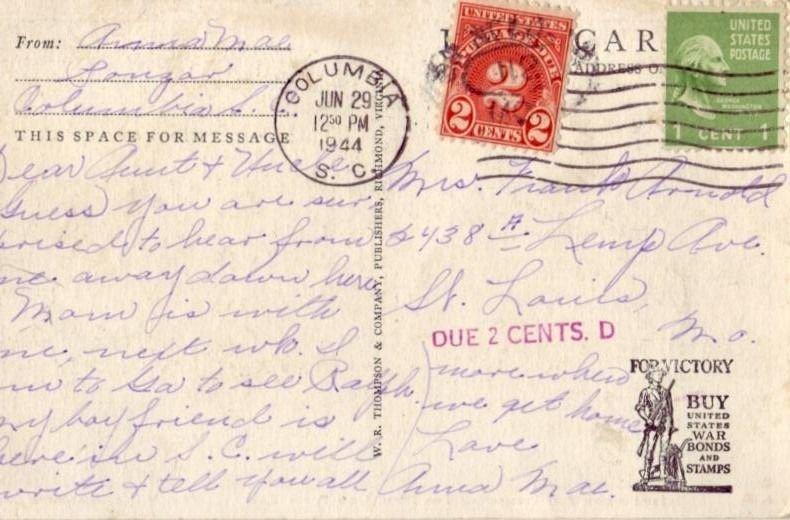 From: Anna Mae
Columbia S.C.
THIS SPACE FOR MESSAGE
Dear Aunt & Uncle
Guess you are sur
prised to hear from
me away down here
Mom is with
me, next wk. I
am to Ga to see Ralph.
my boyfriend is
here in S.C. will
write & tell you all
more when
we get home
Love
Anna Mae.
COLUMBIA
JUN 29
12 50 PM
1944
S. C.
W. R. THOMPSON & COMPANY, PUBLISHERS, RICHMOND, VIRGINIA
UNITED STATES
POSTAGE DUE
2
2 CENTS 2
CAR
ADDRESS O
UNITED
STATES
POSTAGE
GEORGE
WASHINGTON
1 CENT 1
Mrs. Frank Arnold
Lemp Ave.
St. Louis,
Mo.
DUE 2 CENTS. D
FOR VICTORY
BUY
UNITED
STATES
WAR
BONDS
AND
STAMPS